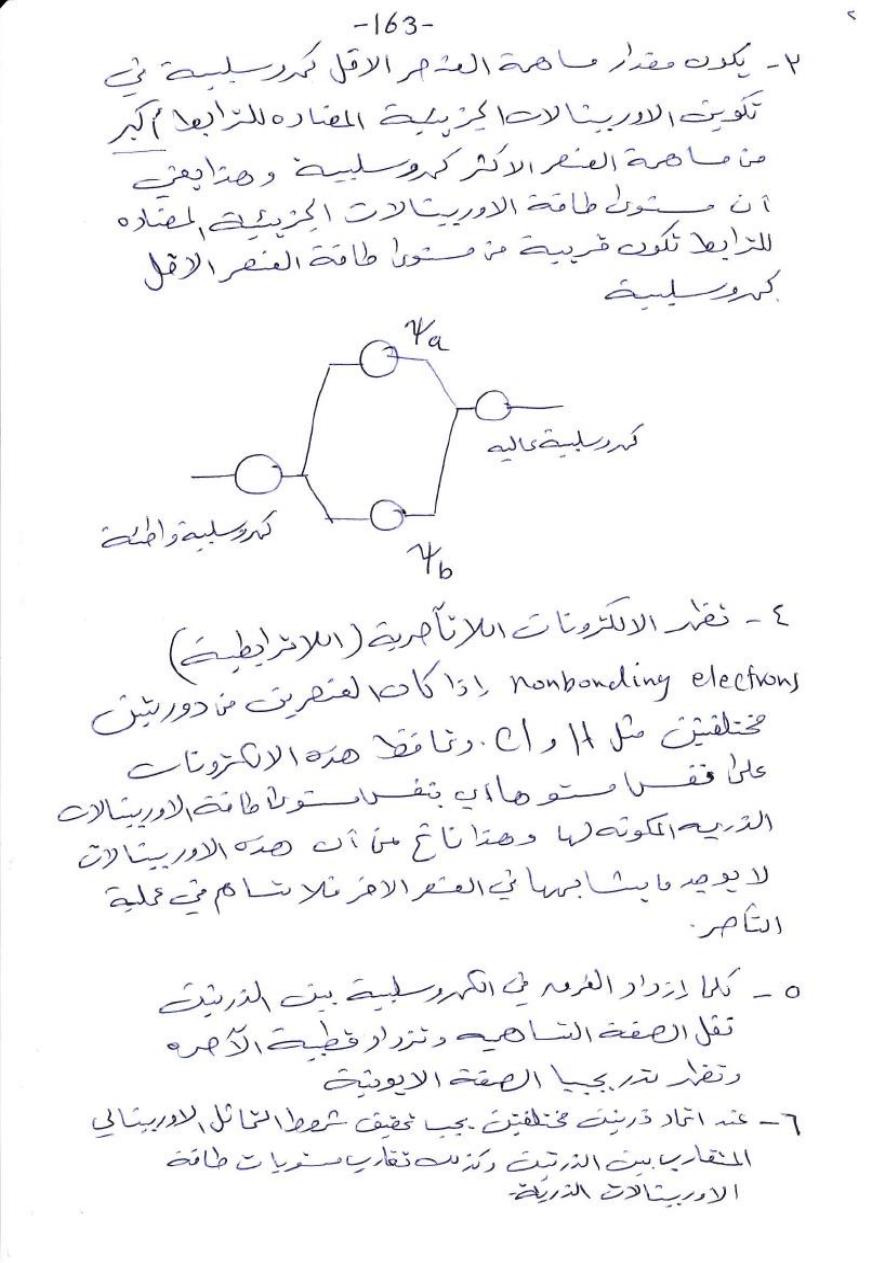 -163-
٢
٣- يكون مقدار مساهمة العنصر الاقل كهروسلبية في
تكوين الاوربيتالات الجزيئية المضاده للترابط أكبر
من مساهمة العنصر الاكثر كهروسلبية وهذا يعني
أن مستوى طاقة الاوربيتالات الجزيئية المضاده
للترابط تكون قريبة من مستوى طاقة العنصر الاقل
كهروسلبية
Ψa
كهروسلبية عاليه
كهروسلبية واطئة
Ψb
٤- تظهر الالكترونات اللاتآصرية (اللاترابطية)
nonbonding electrons إذا كان العنصرين من دورتين
مختلفتين مثل H و Cl. وتحافظ هذه الالكترونات
على نفس مستوها أي بنفس مستوى طاقة الاوربيتالات
الذريه المكونه لها وهذا ناتج من أن هذه الاوربيتالات
لا يوجد ما يشابهها في العنصر الاخر فلا تساهم في عملية
التآصر.
٥- كلما إزداد الفرق في الكهروسلبية بين الذرتين
تقل الصفة التساهميه وتزداد قطبية الآصره
وتظهر تدريجيا الصفة الايونية
٦- عند اتحاد ذرتين مختلفتين يجب تحقيق شروط التماثل الاوربيتالي
المتقارب بين الذرتين وكذلك تقارب مستويات طاقة
الاوربيتالات الذرية.